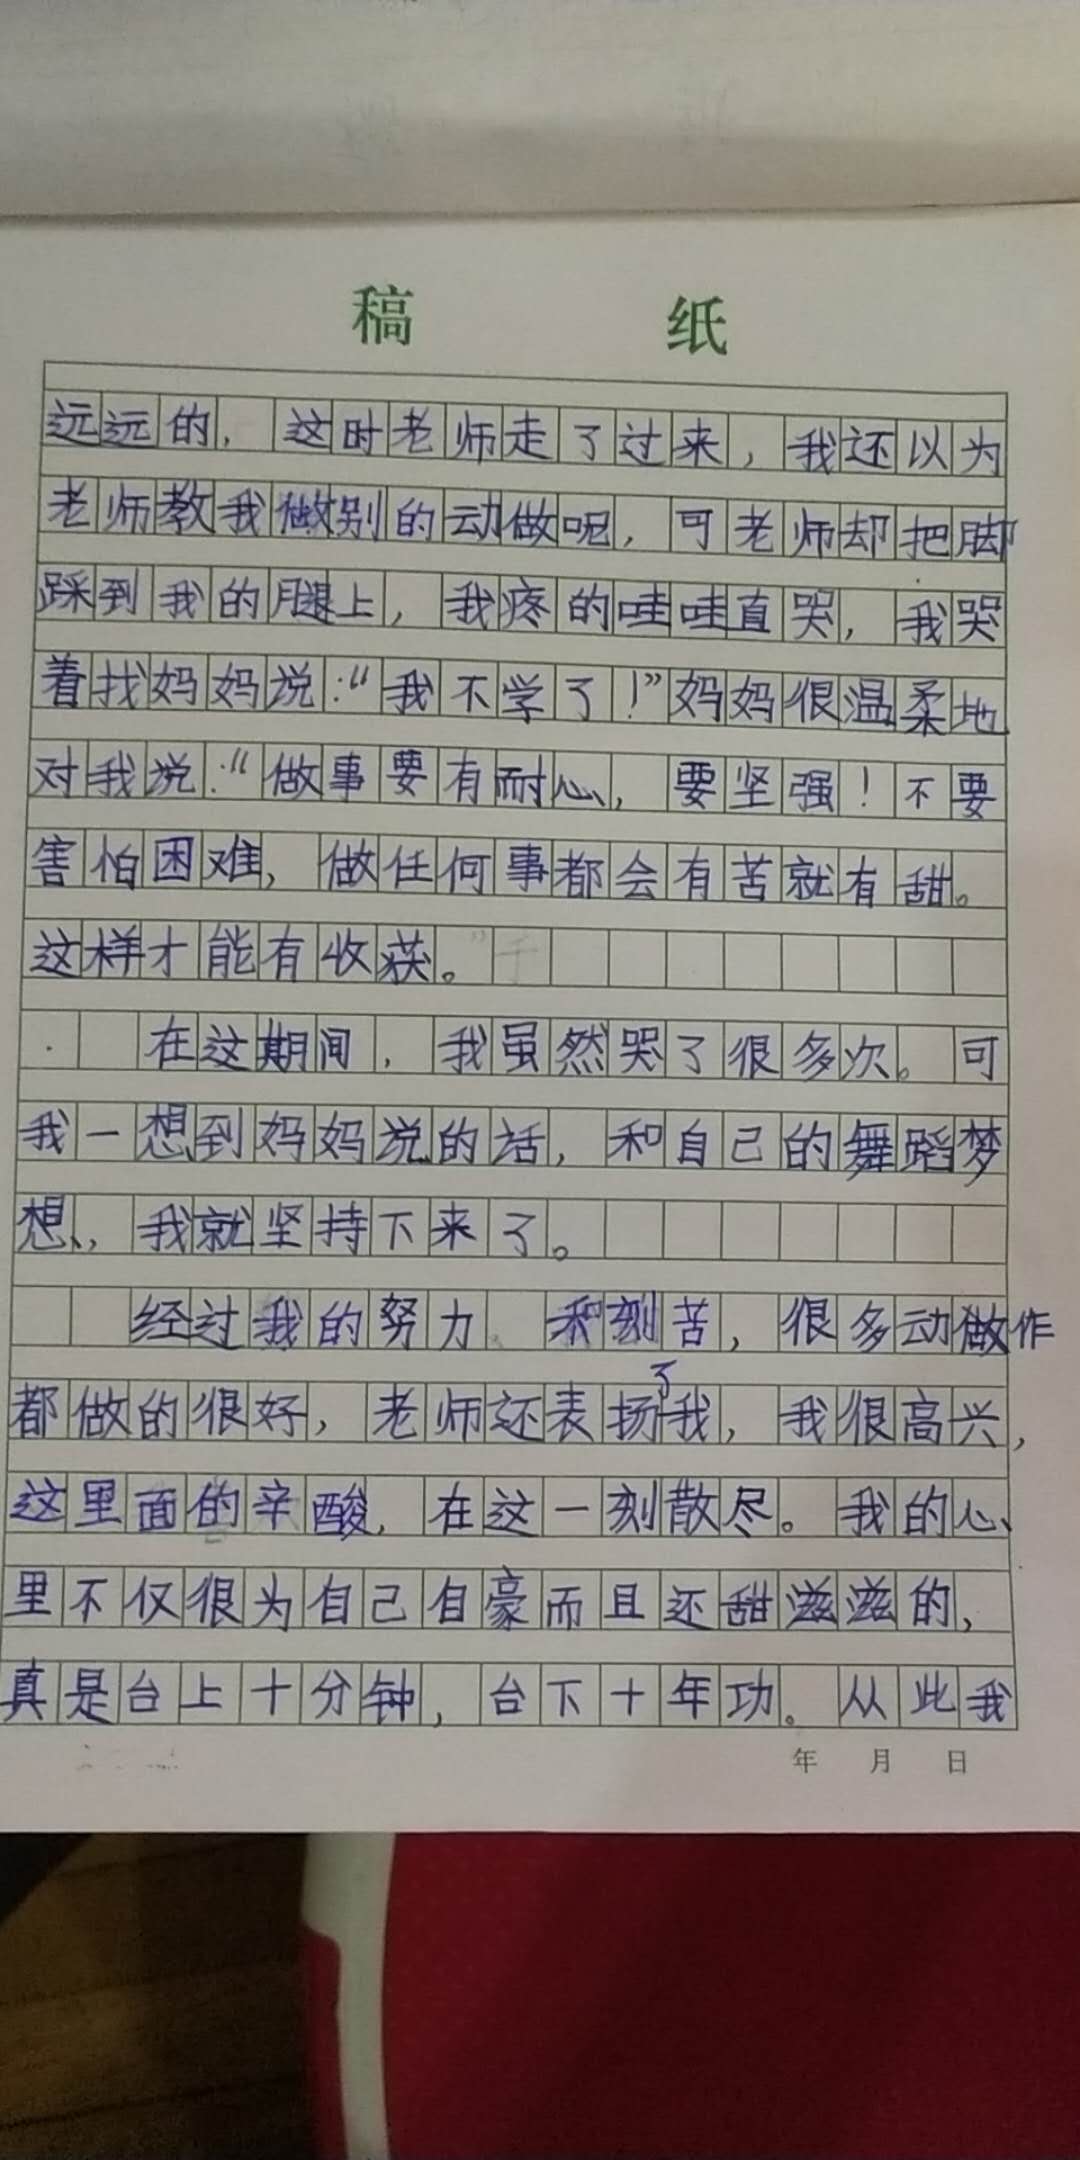 稿 纸
远远的，这时老师走了过来，我还以为
老师教我做别的动做呢，可老师却把脚
踩到我的腿上，我疼的哇哇直哭，我哭
着找妈妈说：“我不学了！”妈妈很温柔地
对我说：“做事要有耐心，要坚强！不要
害怕困难，做任何事都会有苦就有甜。
这样才能有收获。”
在这期间，我虽然哭了很多次。可
我一想到妈妈说的话，和自己的舞蹈梦
想，我就坚持下来了。
经过我的努力、和刻苦，很多动做作
都做的很好，老师还表扬了我，我很高兴，
这里面的辛酸，在这一刻散尽。我的心
里不仅很为自己自豪而且还甜滋滋的，
真是台上十分钟，台下十年功。从此我
年 月 日